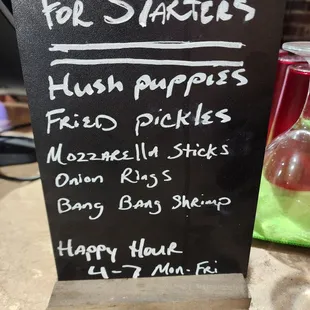 For Starters
Hush puppies
Fried pickles
Mozzarella Sticks
Onion Rings
Bang Bang Shrimp
Happy Hour
4-7 Mon-Fri